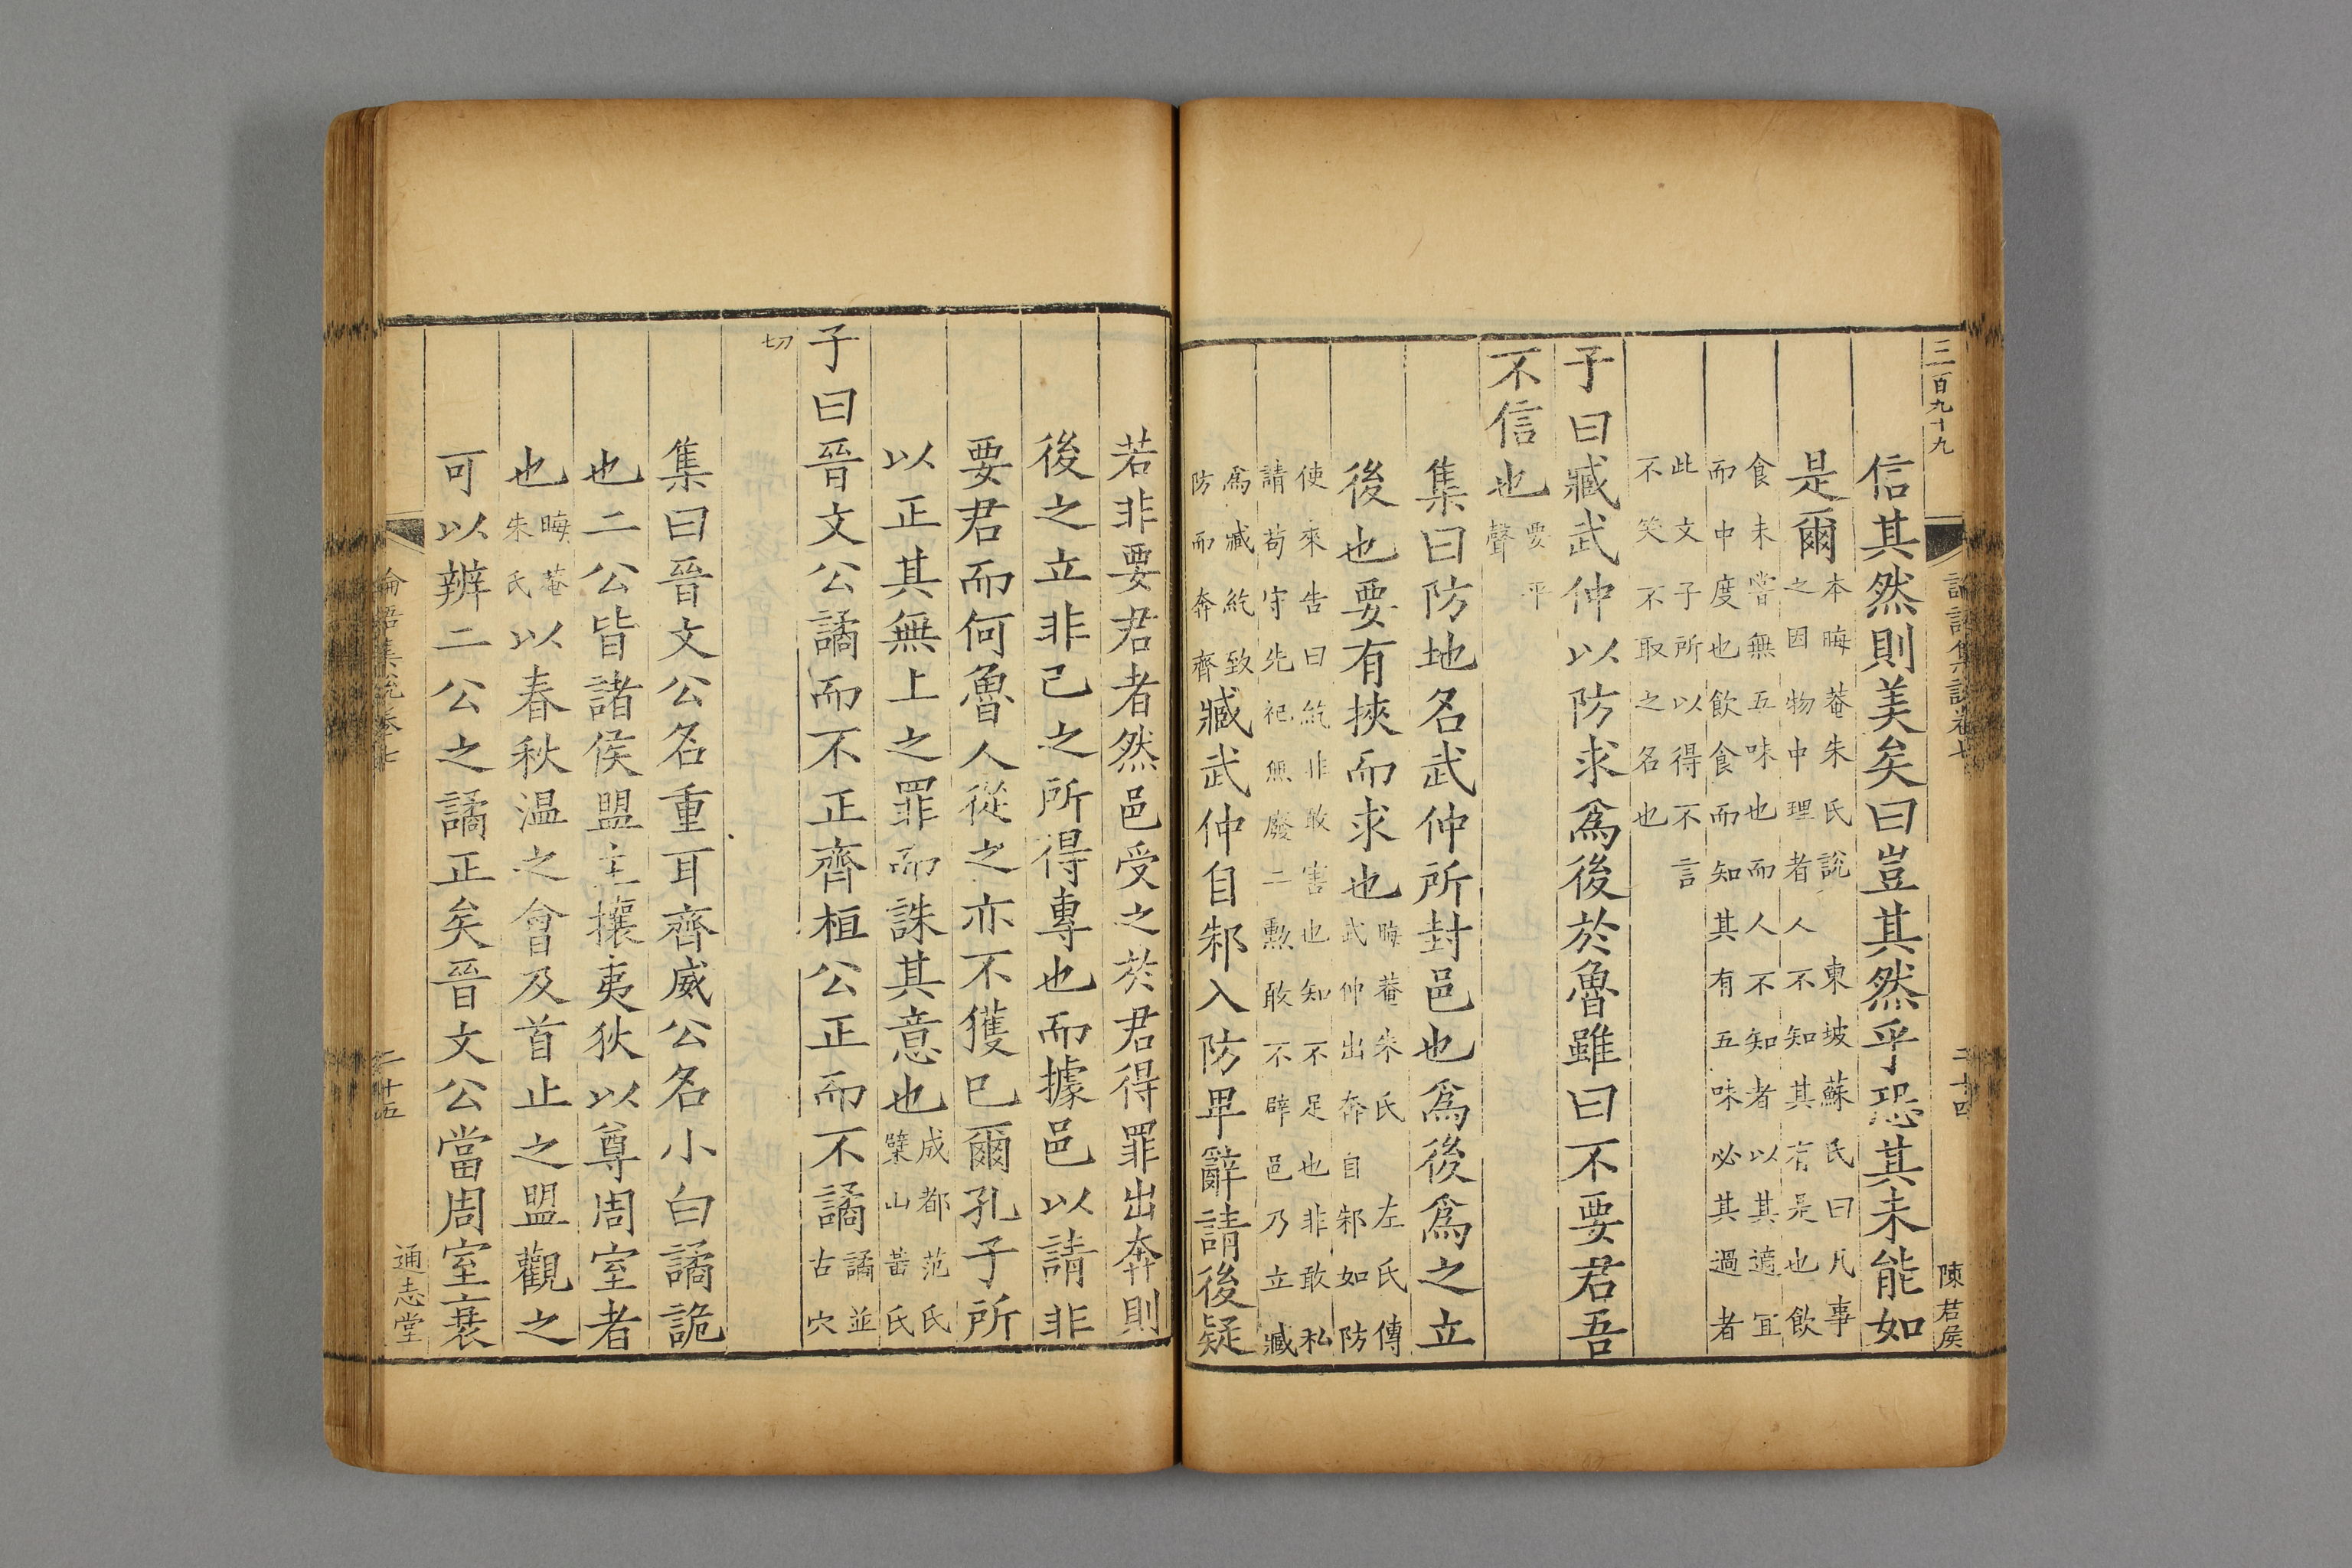 三百九十九
論語集說卷七
二十四
陳君侯
信其然則美矣曰豈其然乎恐其未能如
是爾本晦菴朱氏說 東坡蘇氏曰凡事
之因物中理者人不知其有是也飲
食未嘗無五味也而人不知者以其適宜
而中度也飲食而知其有五味必其過者
此文子所以得不言
不笑不取之名也
子曰臧武仲以防求爲後於魯雖曰不要君吾
不信也要平聲
集曰防地名武仲所封邑也爲後爲之立
後也要有挾而求也晦菴朱氏 左氏傳
武仲出奔自邾如防
使來告曰紇非敢害也知不足也非敢私
請苟守先祀無廢二勲敢不辟邑乃立臧
爲臧紇致
防而奔齊臧武仲自邾入防卑辭請後疑
若非要君者然邑受之於君得罪出奔則
後之立非己之所得專也而據邑以請非
要君而何魯人從之亦不獲已爾孔子所
以正其無上之罪而誅其意也成都范氏
檗山黃氏
子曰晉文公譎而不正齊桓公正而不譎譎並
古穴
切
集曰晉文公名重耳齊威公名小白譎詭
也二公皆諸侯盟主攘夷狄以尊周室者
也晦菴朱氏以春秋温之會及首止之盟觀之
可以辨二公之譎正矣晉文公當周室衰
論語集說卷七
二十五
通志堂